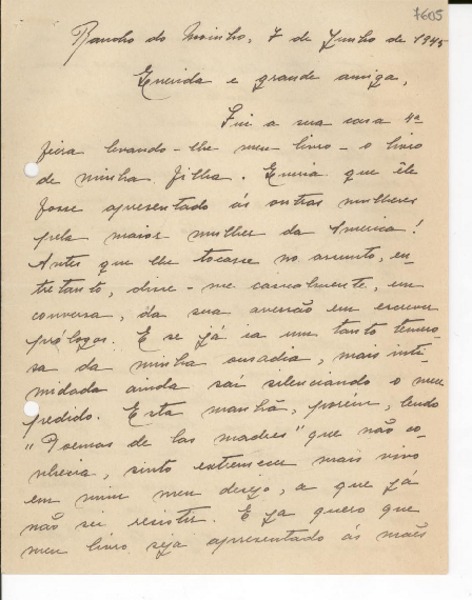 7605
Rancho do Moinho, 7 de Junho de 1945
Querida e grande amiga,
Fui a sua casa 4ª
feira levando-lhe meu livro - o livro
de minha filha. Queria que êle
fosse apresentado ás outras mulheres
pela maior mulher da America!
Antes que lhe tocasse no assunto, en-
tretanto, disse-me casualmente, em
conversa, da sua aversão em escrever
prólogos. E se já ia um tanto temero-
sa da minha ousadia, mais inti-
midada ainda saí silenciando o meu
pedido. Esta manhã, porém, lendo
"Poemas de las madres" que não co-
nhecia, sinto extremecer mais vivo
em mim meu desejo, a que já
não sei resistir. E já quero que
meu livro seja apresentado ás mães